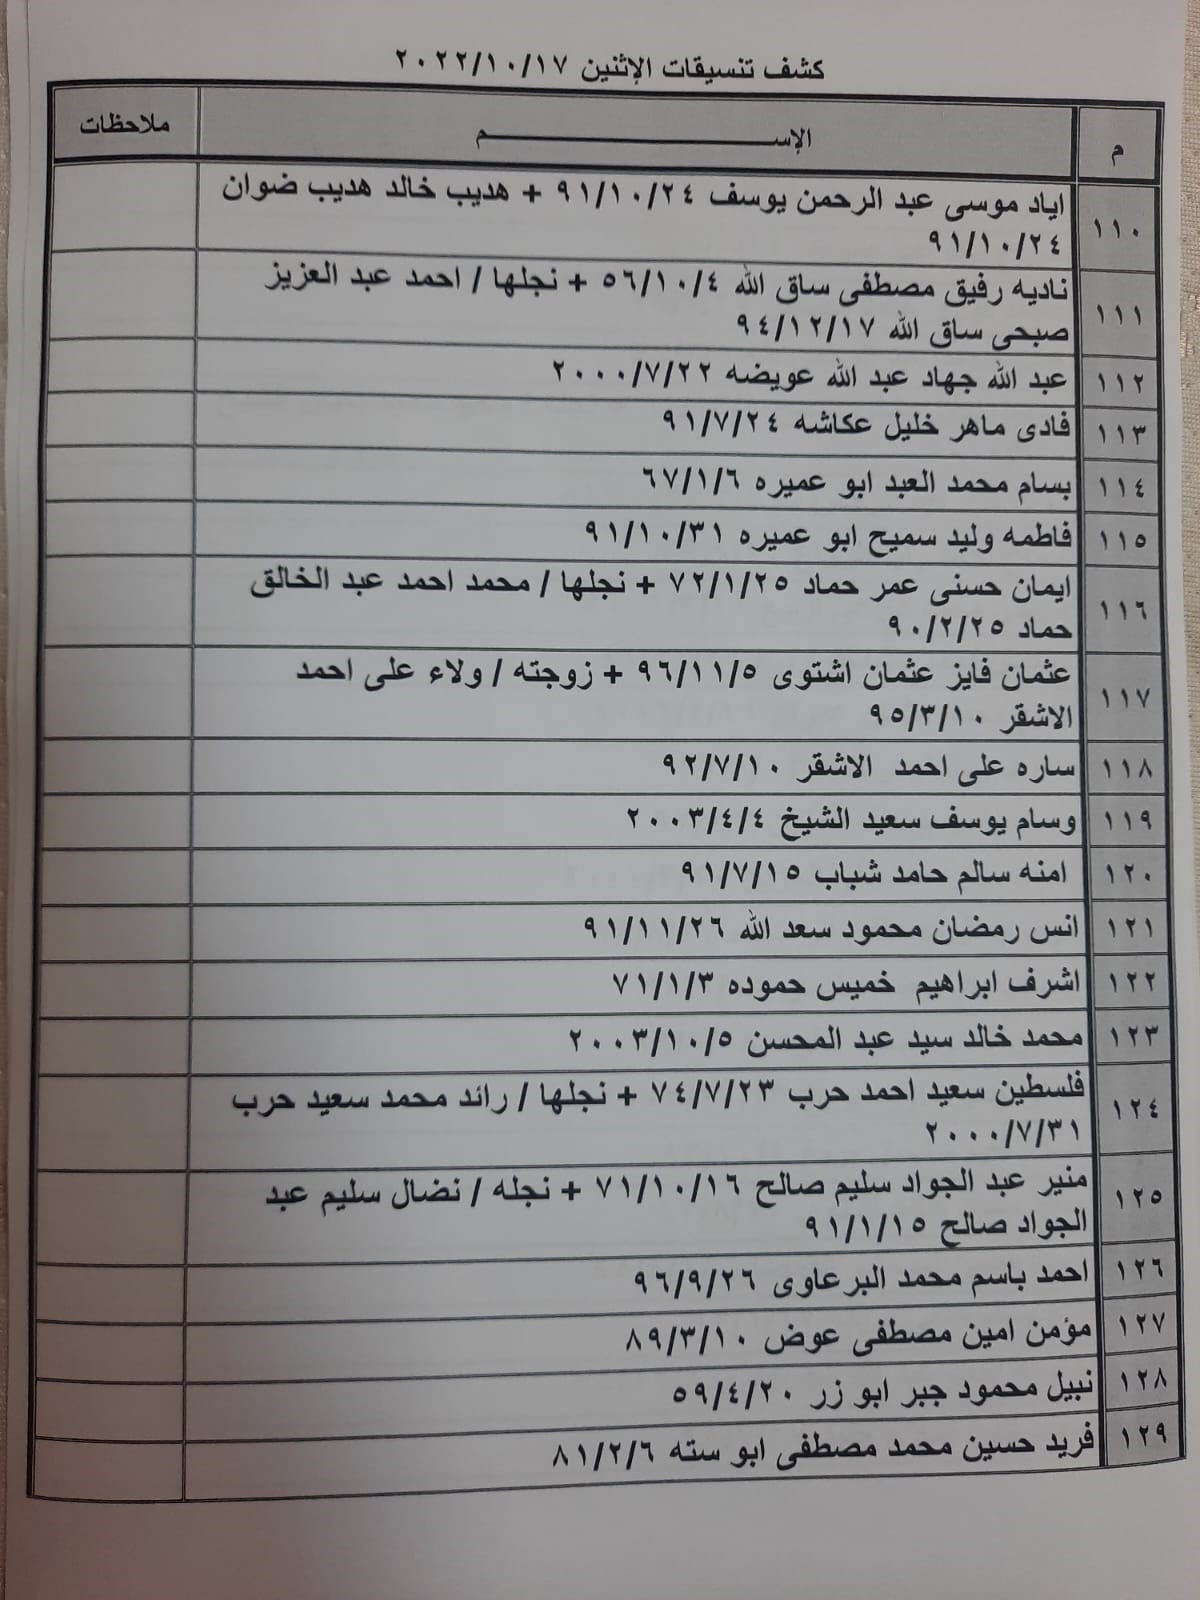 كشف تنسيقات الإثنين ٢٠٢٢/١٠/١٧
م الإســـــــــم ملاحظات
١١٠ اياد موسى عبد الرحمن يوسف ٩١/١٠/٢٤ + هديب خالد هديب ضوان
٩١/١٠/٢٤
١١١ ناديه رفيق مصطفى ساق الله ٥٦/١٠/٤ + نجلها / احمد عبد العزيز
صبحى ساق الله ٩٤/١٢/١٧
١١٢ عبد الله جهاد عبد الله عويضه ٢٠٠٠/٧/٢٢
١١٣ فادى ماهر خليل عكاشه ٩١/٧/٢٤
١١٤ بسام محمد العبد ابو عميره ٦٧/١/٦
١١٥ فاطمه وليد سميح ابو عميره ٩١/١٠/٣١
١١٦ ايمان حسنى عمر حماد ٧٢/١/٢٥ + نجلها / محمد احمد عبد الخالق
حماد ٩٠/٢/٢٥
١١٧ عثمان فايز عثمان اشتوى ٩٦/١١/٥ + زوجته / ولاء على احمد
الاشقر ٩٥/٣/١٠
١١٨ ساره على احمد الاشقر ٩٢/٧/١٠
١١٩ وسام يوسف سعيد الشيخ ٢٠٠٣/٤/٤
١٢٠ امنه سالم حامد شباب ٩١/٧/١٥
١٢١ انس رمضان محمود سعد الله ٩١/١١/٢٦
١٢٢ اشرف ابراهيم خميس حموده ٧١/١/٣
١٢٣ محمد خالد سيد عبد المحسن ٢٠٠٣/١٠/٥
١٢٤ فلسطين سعيد احمد حرب ٧٤/٧/٢٣ + نجلها / رائد محمد سعيد حرب
٢٠٠٠/٧/٣١
١٢٥ منير عبد الجواد سليم صالح ٧١/١٠/١٦ + نجله / نضال سليم عبد
الجواد صالح ٩١/١/١٥
١٢٦ احمد باسم محمد البرعاوى ٩٦/٩/٢٦
١٢٧ مؤمن امين مصطفى عوض ٨٩/٣/١٠
١٢٨ نبيل محمود جبر ابو زر ٥٩/٤/٢٠
١٢٩ فريد حسين محمد مصطفى ابو سته ٨١/٢/٦